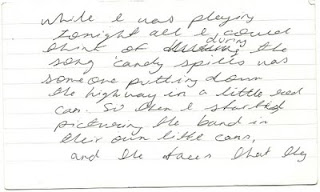 While I was playing
tonight all I could
think of during the
song 'candy spills was
someone putting down
the highway in a little red
car. So then I started
picturing the band in
their own little cars,
and the faces that they